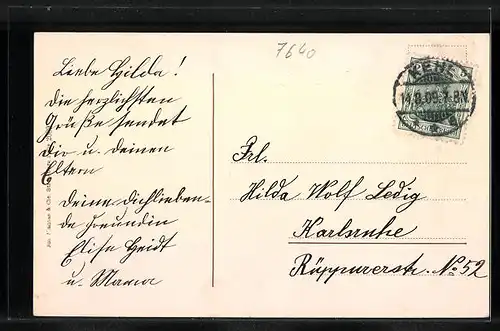 7640
Liebe Hilda!
Die herzlichsten
Grüße sendet
Dir u. deinen
Eltern
Deine dichlieben-
de Freundin
Elise Heidt
u. Mama
KEHL
Frl.
Hilda Wolf Ledig
Karlsruhe
Rüppurerstr. No 52